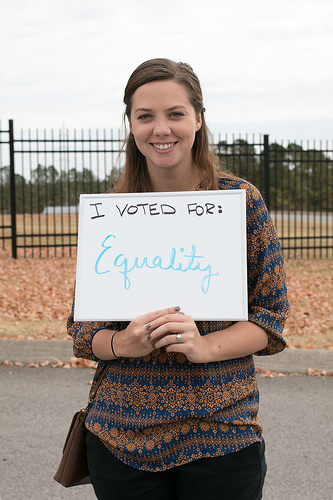 I VOTED FOR:
Equality